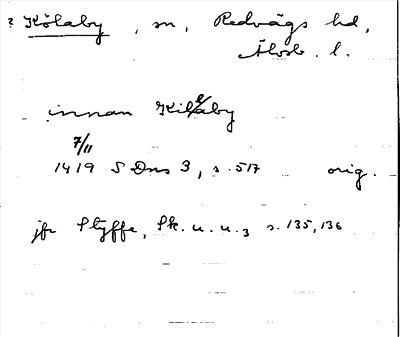 ? Kölaby, sn, Redvägs hd,
Älvsb. l.
innan Kilaby
7/11
1419 S Dns 3, s. 517 orig.
jfr Styffe, Sk. u. u. 3 s. 135, 136